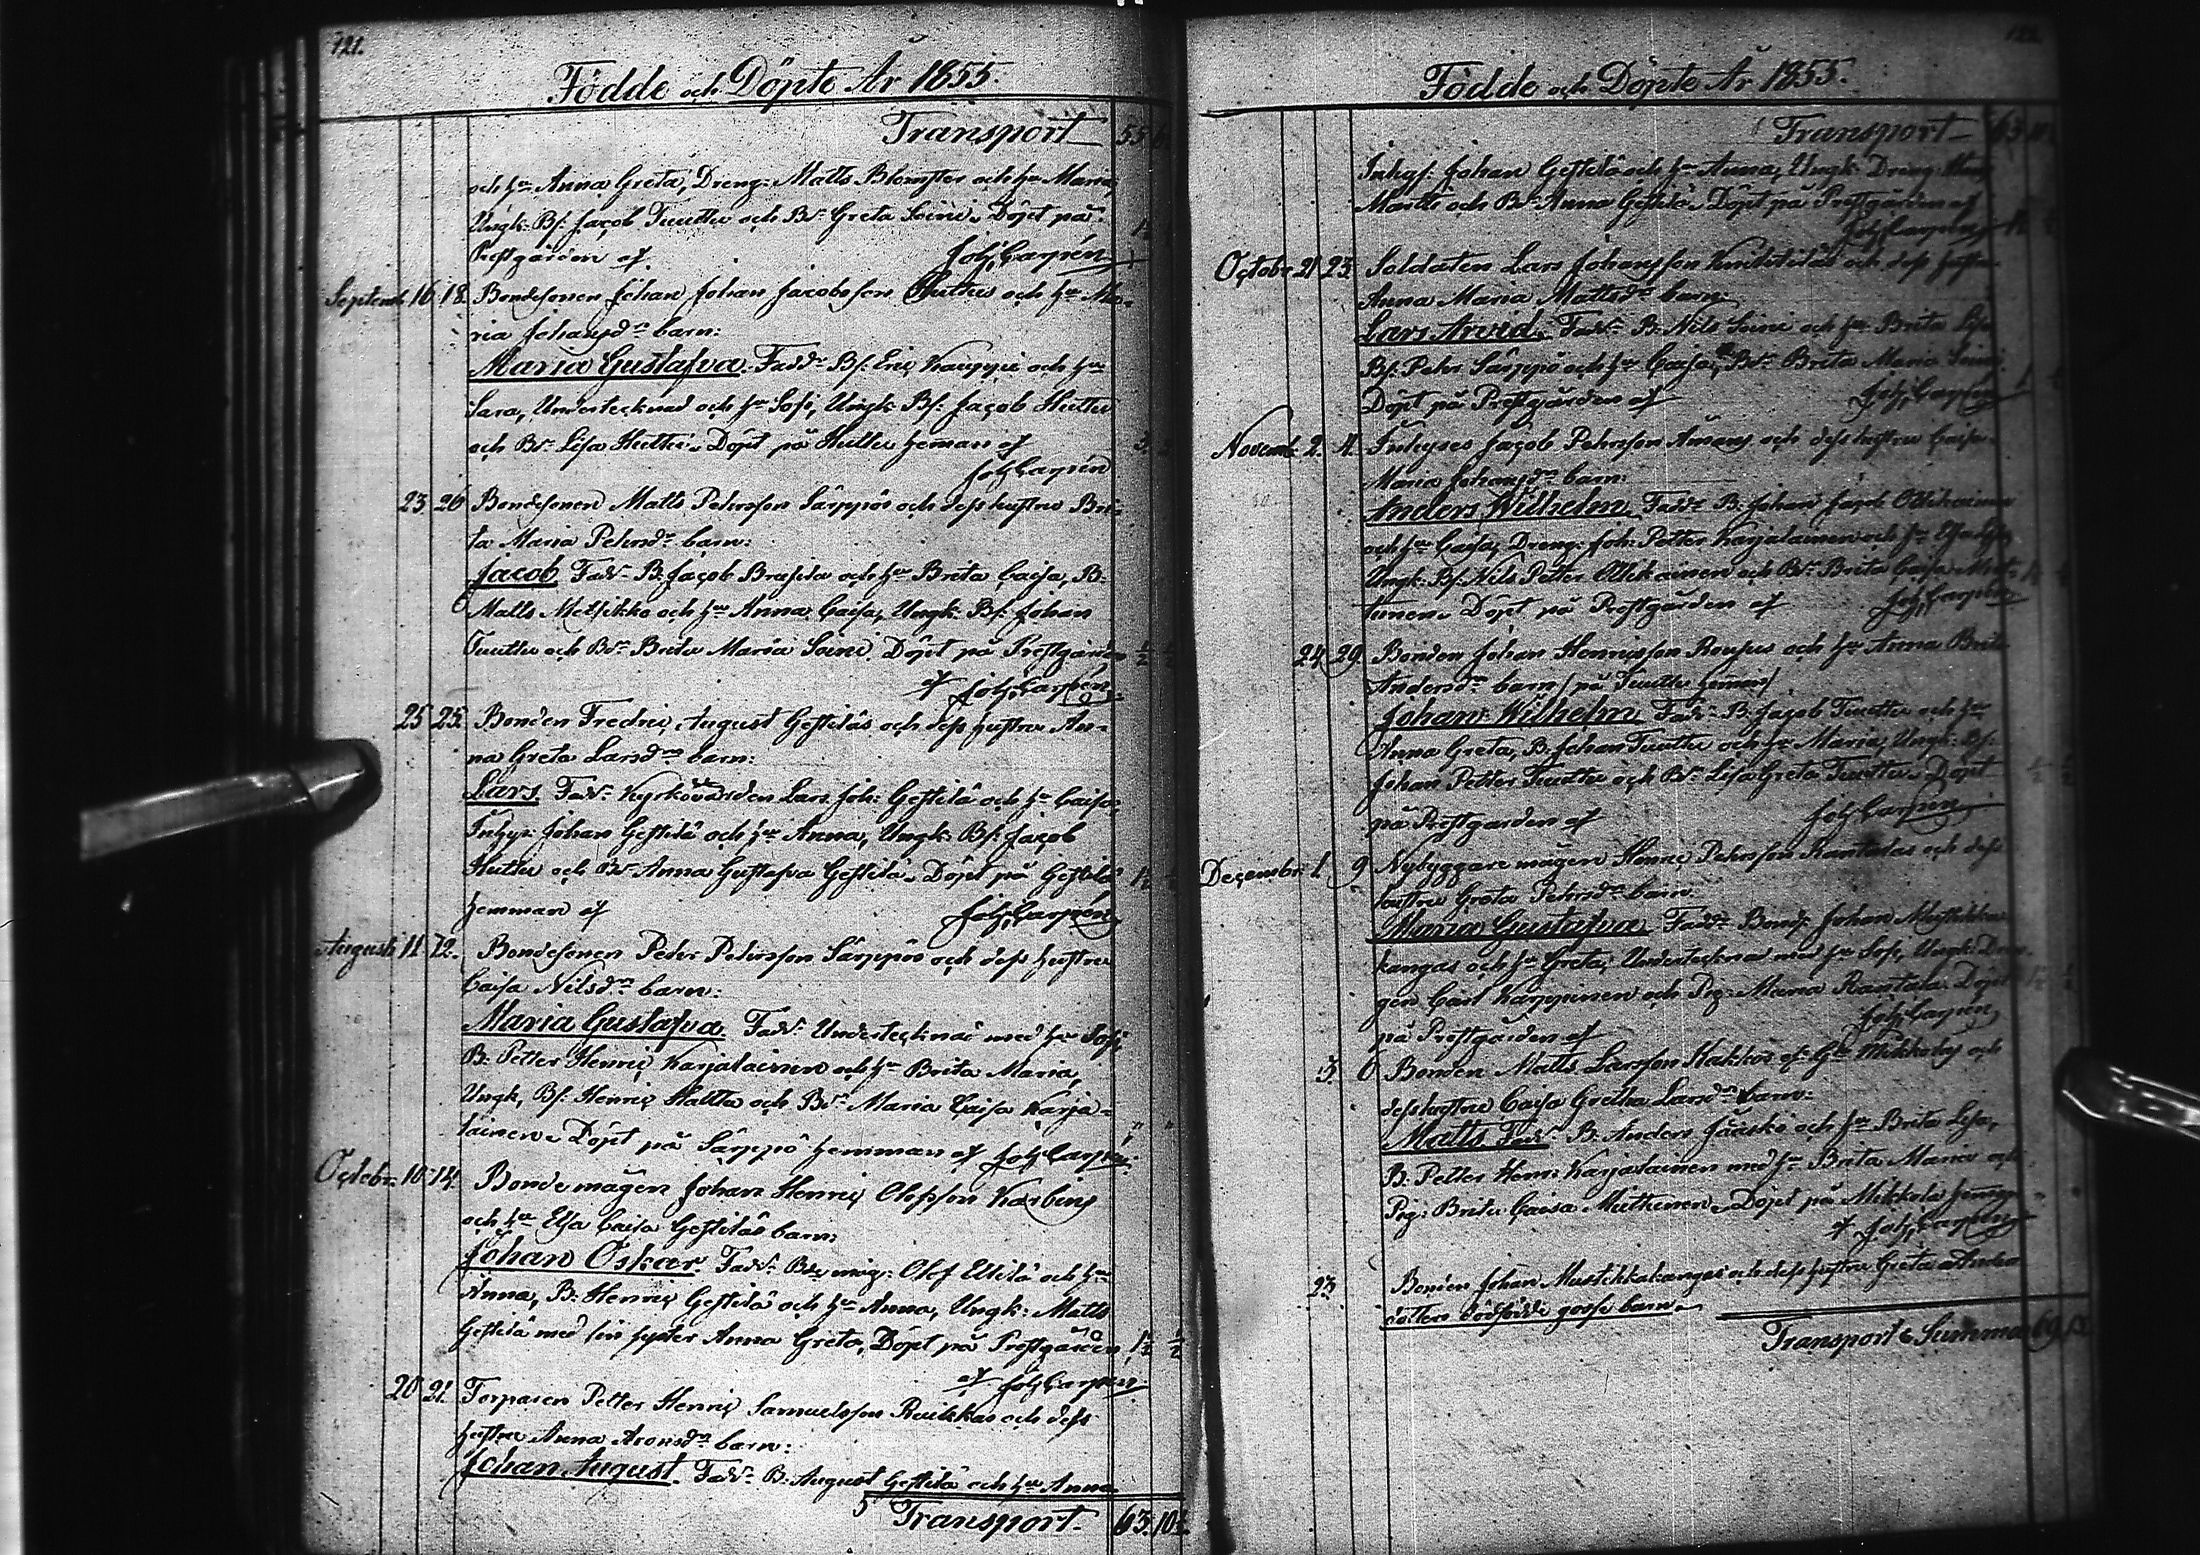 121.
Födde och Döpte År 1855.
Transport 55
och hu Anna Greta, Dreng: Matts Blomster och hu Maria,
Ungk: Bs: Jacob Tuuttu och Bdr Greta Soini. Döpt på
Prestgården af Joh, Carpén
Septemb 16 18. Bondesonen Johan Jacobsson Huttus och hu Ma-
ria Johansdr barn:
Maria Gustafva. Faddr Bs: Eric Kauppi och hu
Sara, Undertecknad och hu Sofi, Ungk: Bs: Jacob Huttu
och Bdr Lisa Huttu. Döpt på Huttu heman af
Joh, Carpén
23 26 Bondesonen Matts Pehrsson Särppös och dess hustru Bri-
ta Maria Pehrsdr barn:
Jacob. Faddr B: Jacob och hu Brita Caisa, B:
Matts och hu Anna Caisa, Ungk: Bs: Johan
Tuuttu och Bdr Brita Maria Soini. Döpt på Prestgården ½ ½
af Joh, Carpén
25 25. Bonden Fredric August Gestiläs och dess hustru An-
na Greta Larsdrs barn:
Lars. Faddr Kyrkovärden Lars Joh: Gestilä och hu Caisa,
Inhys: Johan Gestilä och hu Anna, Ungk: Bs: Jacob
Huttu och Bdr Anna Gustafva Gestilä. Döpt på Gestilä 1½
hemman af Joh, Carpén
Augusti 11. 12. Bondesonen Pehr Pehrsson Särppös och dess hustru
Caisa Nilsdr barn:
Maria Gustafva. Faddr Undertecknad med hu Sofi,
B: Petter Henric Karjalainen och hu Brita Maria,
Ungk, Bs: Henric Halttu och Bdr Maria Caisa Karja-
lainen. Döpt på Särppö hemman af Joh, Carpén. " "
Octobr. 10 14. Bonde mågen Johan Henric Olofsson Karbins
och hu Elsa Caisa Gestiläs barn:
Johan Oskar. Faddr måg: Olof Ellilä och hu
Anna, B: Henric Gestilä och hu Anna, Ungk: Matts
Gestilä med sin syster Anna Greta, Döpt på Prestgården 1½ ½
af Joh, Carpén.
20 21. Torparen Petter Henric Samuelsson och dess
hustru Anna Aronsdr barn:
Johan August. Faddr B: August Gestilä och hu Anna
Transport. 63. 10½.
122.
Födde och Döpte År 1855.
Transport 63 10½
Inhys: Johan Gestilä och hu Anna, Ungk: Dreng:
och Bdr Anna Gestilä. Döpt på Prestgården af
Joh, Carpén 1½ ½
Octobr. 21 23. Soldaten Lars Johansson och dess hustru
Anna Maria Mattsdr barn:
Lars Arvid. Faddr B: Nils Soini och hu Brita Lisa
Bs: Pehr Särppö och hu Caisa, Bdr Brita Maria Soini.
Döpt på Prestgården af Joh, Carpén
Novemb. 2. 4. Inhyses Jacob Pehrsson och dess hustru Caisa
Maria Johansdr barn:
Anders Wilhelm. Faddr B: Johan Jacob Ollikainen
och hu Caisa, Dreng: Joh: Petter Karjalainen och hu
Ungk: Bs: Nils Petter Ollikainen och Bdr Brita Caisa
Döpt på Prestgården af Joh, Carpén
24 29. Bonden Johan Henricsson och hu Anna Brita
Andersdr barn / på Tuuttu heman /
Johan Wilhelm. Faddr B: Jacob Tuuttu och hu
Anna Greta, B: Johan Tuuttu och hu Maria, Ungk: Bs:
Johan Petter Tuuttu och Bdr Lisa Greta Tuuttu. Döpt ½ ½
på Prestgården af Joh, Carpén
Decembr. 1 9. Nybyggare mågen Henric Pehrsson Rantalas och dess
hustru Greta Pehrsdr barn:
Maria Gustafva. Faddr Bonds: Johan Mustikka-
kangas och hu Greta, Undertecknad med hu Sofi, Ungk: Dren-
gen Carl Karppinen och Pig: Maria Rantala. Döpt
på Prestgården af Joh, Carpén
3. 6 Bonden Matts Larsson Hakkos af Mikkola och
dess hustru Caisa Gretha Larsdr barn:
Matts. Faddr B: Anders Jääskö och hu Brita Lisa,
B: Petter Henr: Karjalainen med hu Brita Maria och
Pig: Brita Caisa Döpt på Mikkola
af Joh, Carpén
23. Bonden Johan Mustikkakangas och dess hustru Greta Anders
dotters dödfödde gosse barn.
Transport & Summa 69.